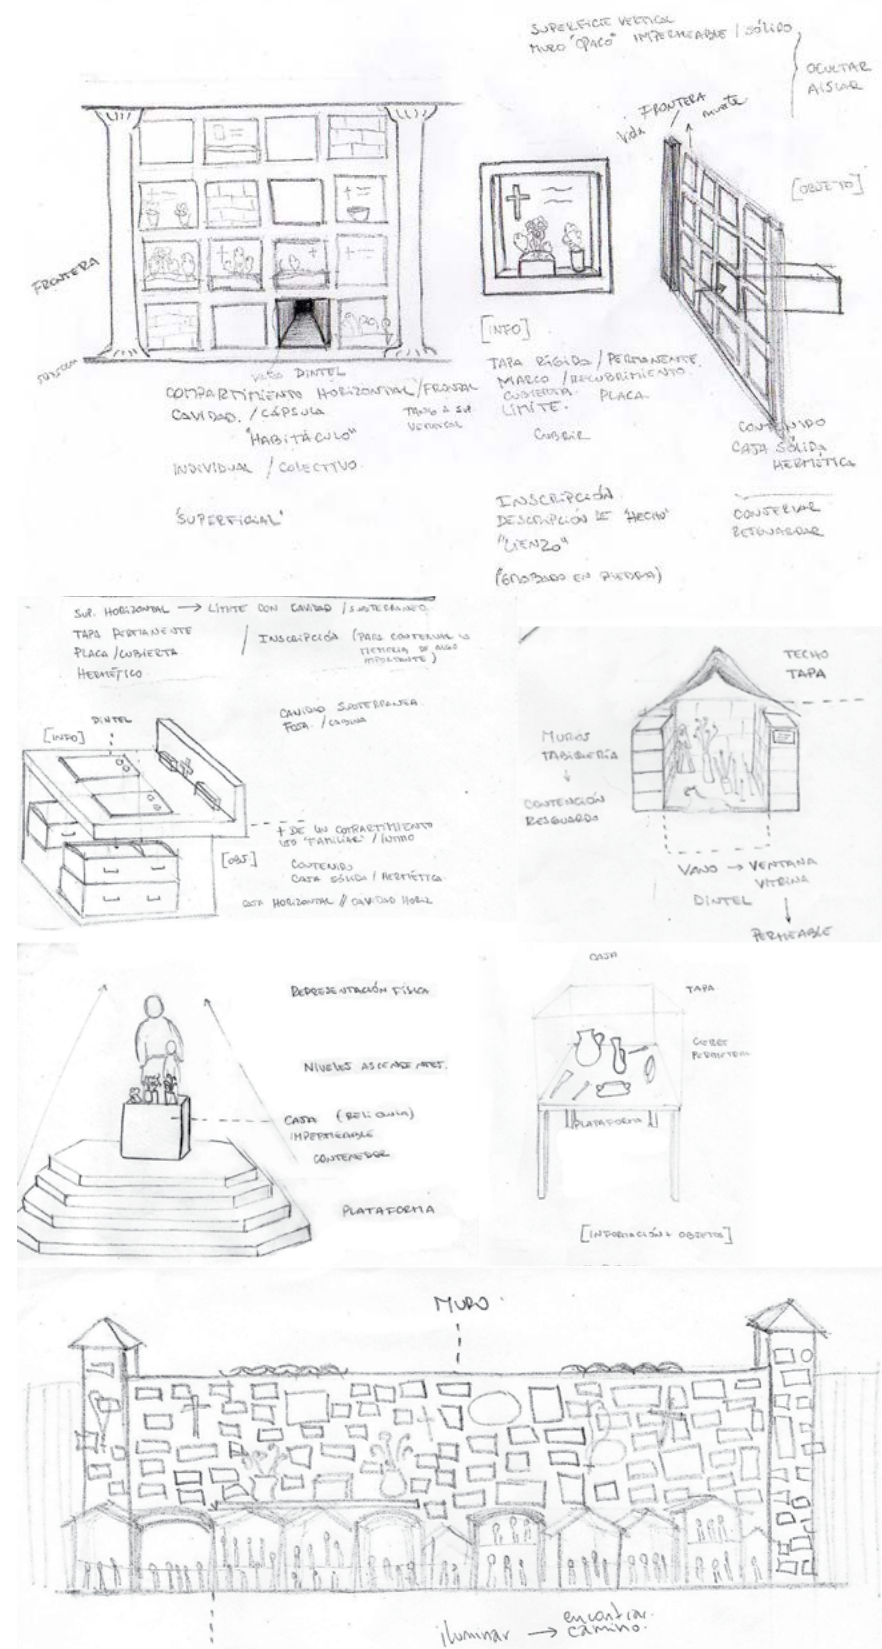 SUPERFICIE VERTICAL
MURO "OPACO" IMPERMEABLE / SÓLIDO
OCULTAR
AISLAR
FRONTERA
vida / muerte
[OBJETO]
FRONTERA
DINTEL
COMPARTIMIENTO HORIZONTAL / FRONTAL
CAVIDAD / CÁPSULA
"HABITÁCULO"
INDIVIDUAL / COLECTIVO
'SUPERFICIAL'
[INFO]
TAPA RÍGIDA / PERMANENTE
MARCO / RECUBRIMIENTO
CUBIERTA PLACA
LÍMITE.
CUBRIR
INSCRIPCIÓN
DESCRIPCIÓN DE 'HECHO'
"LIENZO"
(GRABADO EN PIEDRA)
CONTENIDO
CAJA SÓLIDA
HERMÉTICA
CONSERVAR
RESGUARDAR
SUP. HORIZONTAL → LÍMITE CON CAVIDAD / SUBTERRANEO
TAPA PERMANENTE
PLACA / CUBIERTA
HERMÉTICO
/ INSCRIPCIÓN (PARA CONSERVAR LA
MEMORIA DE ALGO
IMPORTANTE)
CAVIDAD SUBTERRANEA
FOSA /
DINTEL
[INFO]
+ DE UN COMPARTIMIENTO
USO "FAMILIAR" / ÍNTIMO
[OBJ.]
CONTENIDO
CAJA SÓLIDA / HERMÉTICA
CAJA HORIZONTAL // CAVIDAD HORIZ.
TECHO
TAPA
MUROS
TABIQUERÍA
CONTENCIÓN
RESGUARDO
VANO → VENTANA
VITRINA
DINTEL
PERMEABLE
REPRESENTACIÓN FÍSICA
NIVELES ASCENDENTES.
CAJA (RELIQUIA)
IMPERMEABLE
CONTENEDOR
PLATAFORMA
CAJA
TAPA
CIERRE
PERIMETRAL
PLATAFORMA
[INFORMACIÓN + OBJETO]
MURO
iluminar → encontrar
camino.